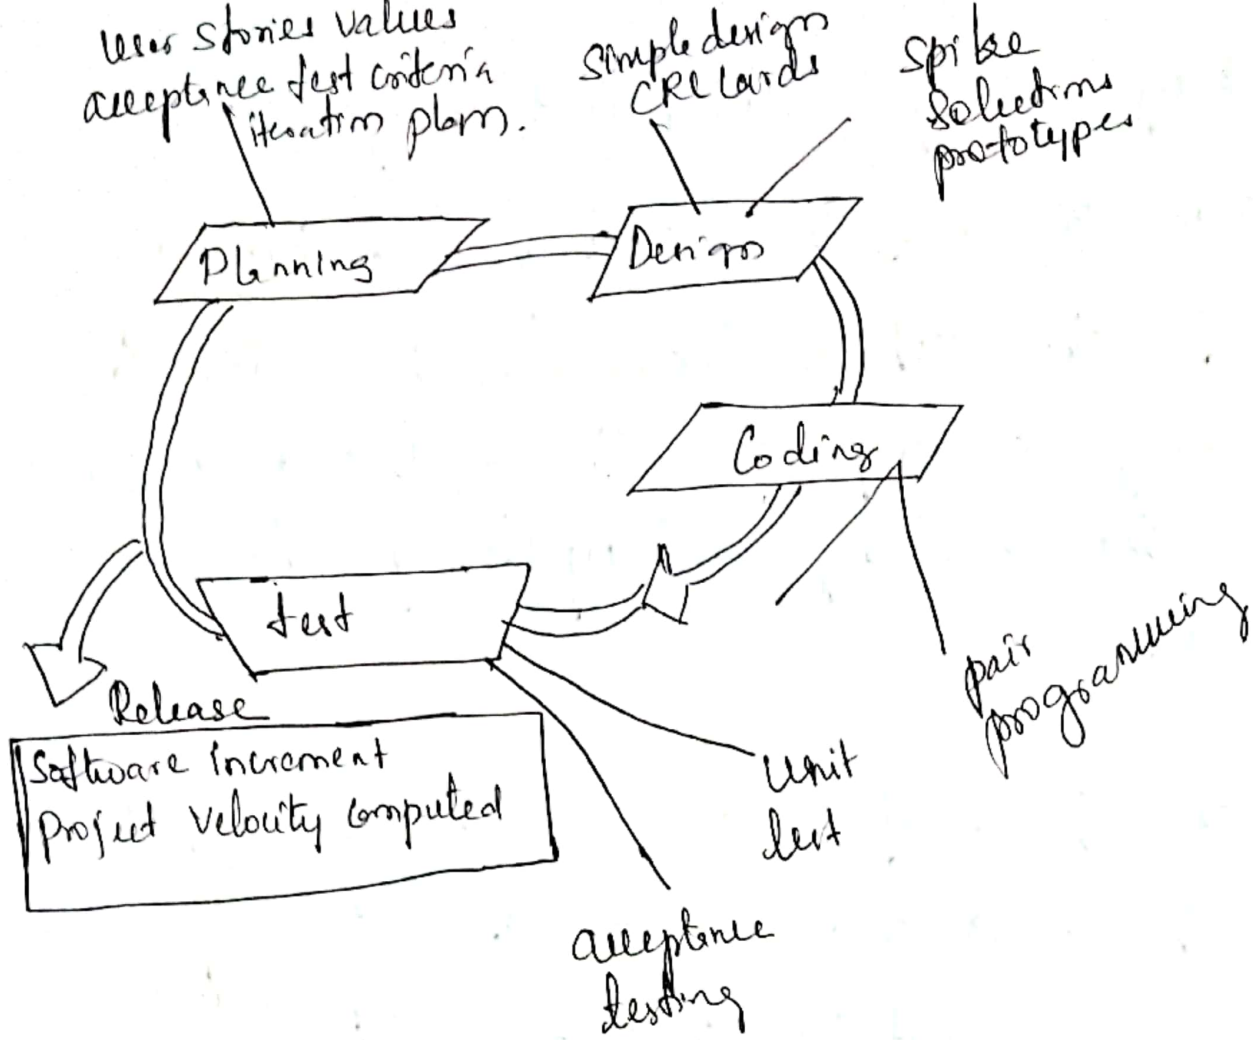 User stories values
acceptance test criteria
iteration plan.
Simple design
CRC Cards
Spike
Solutions
prototypes
Planning
Design
Coding
test
Release
Software increment
project velocity computed
pair
programming
unit
test
acceptance
testing